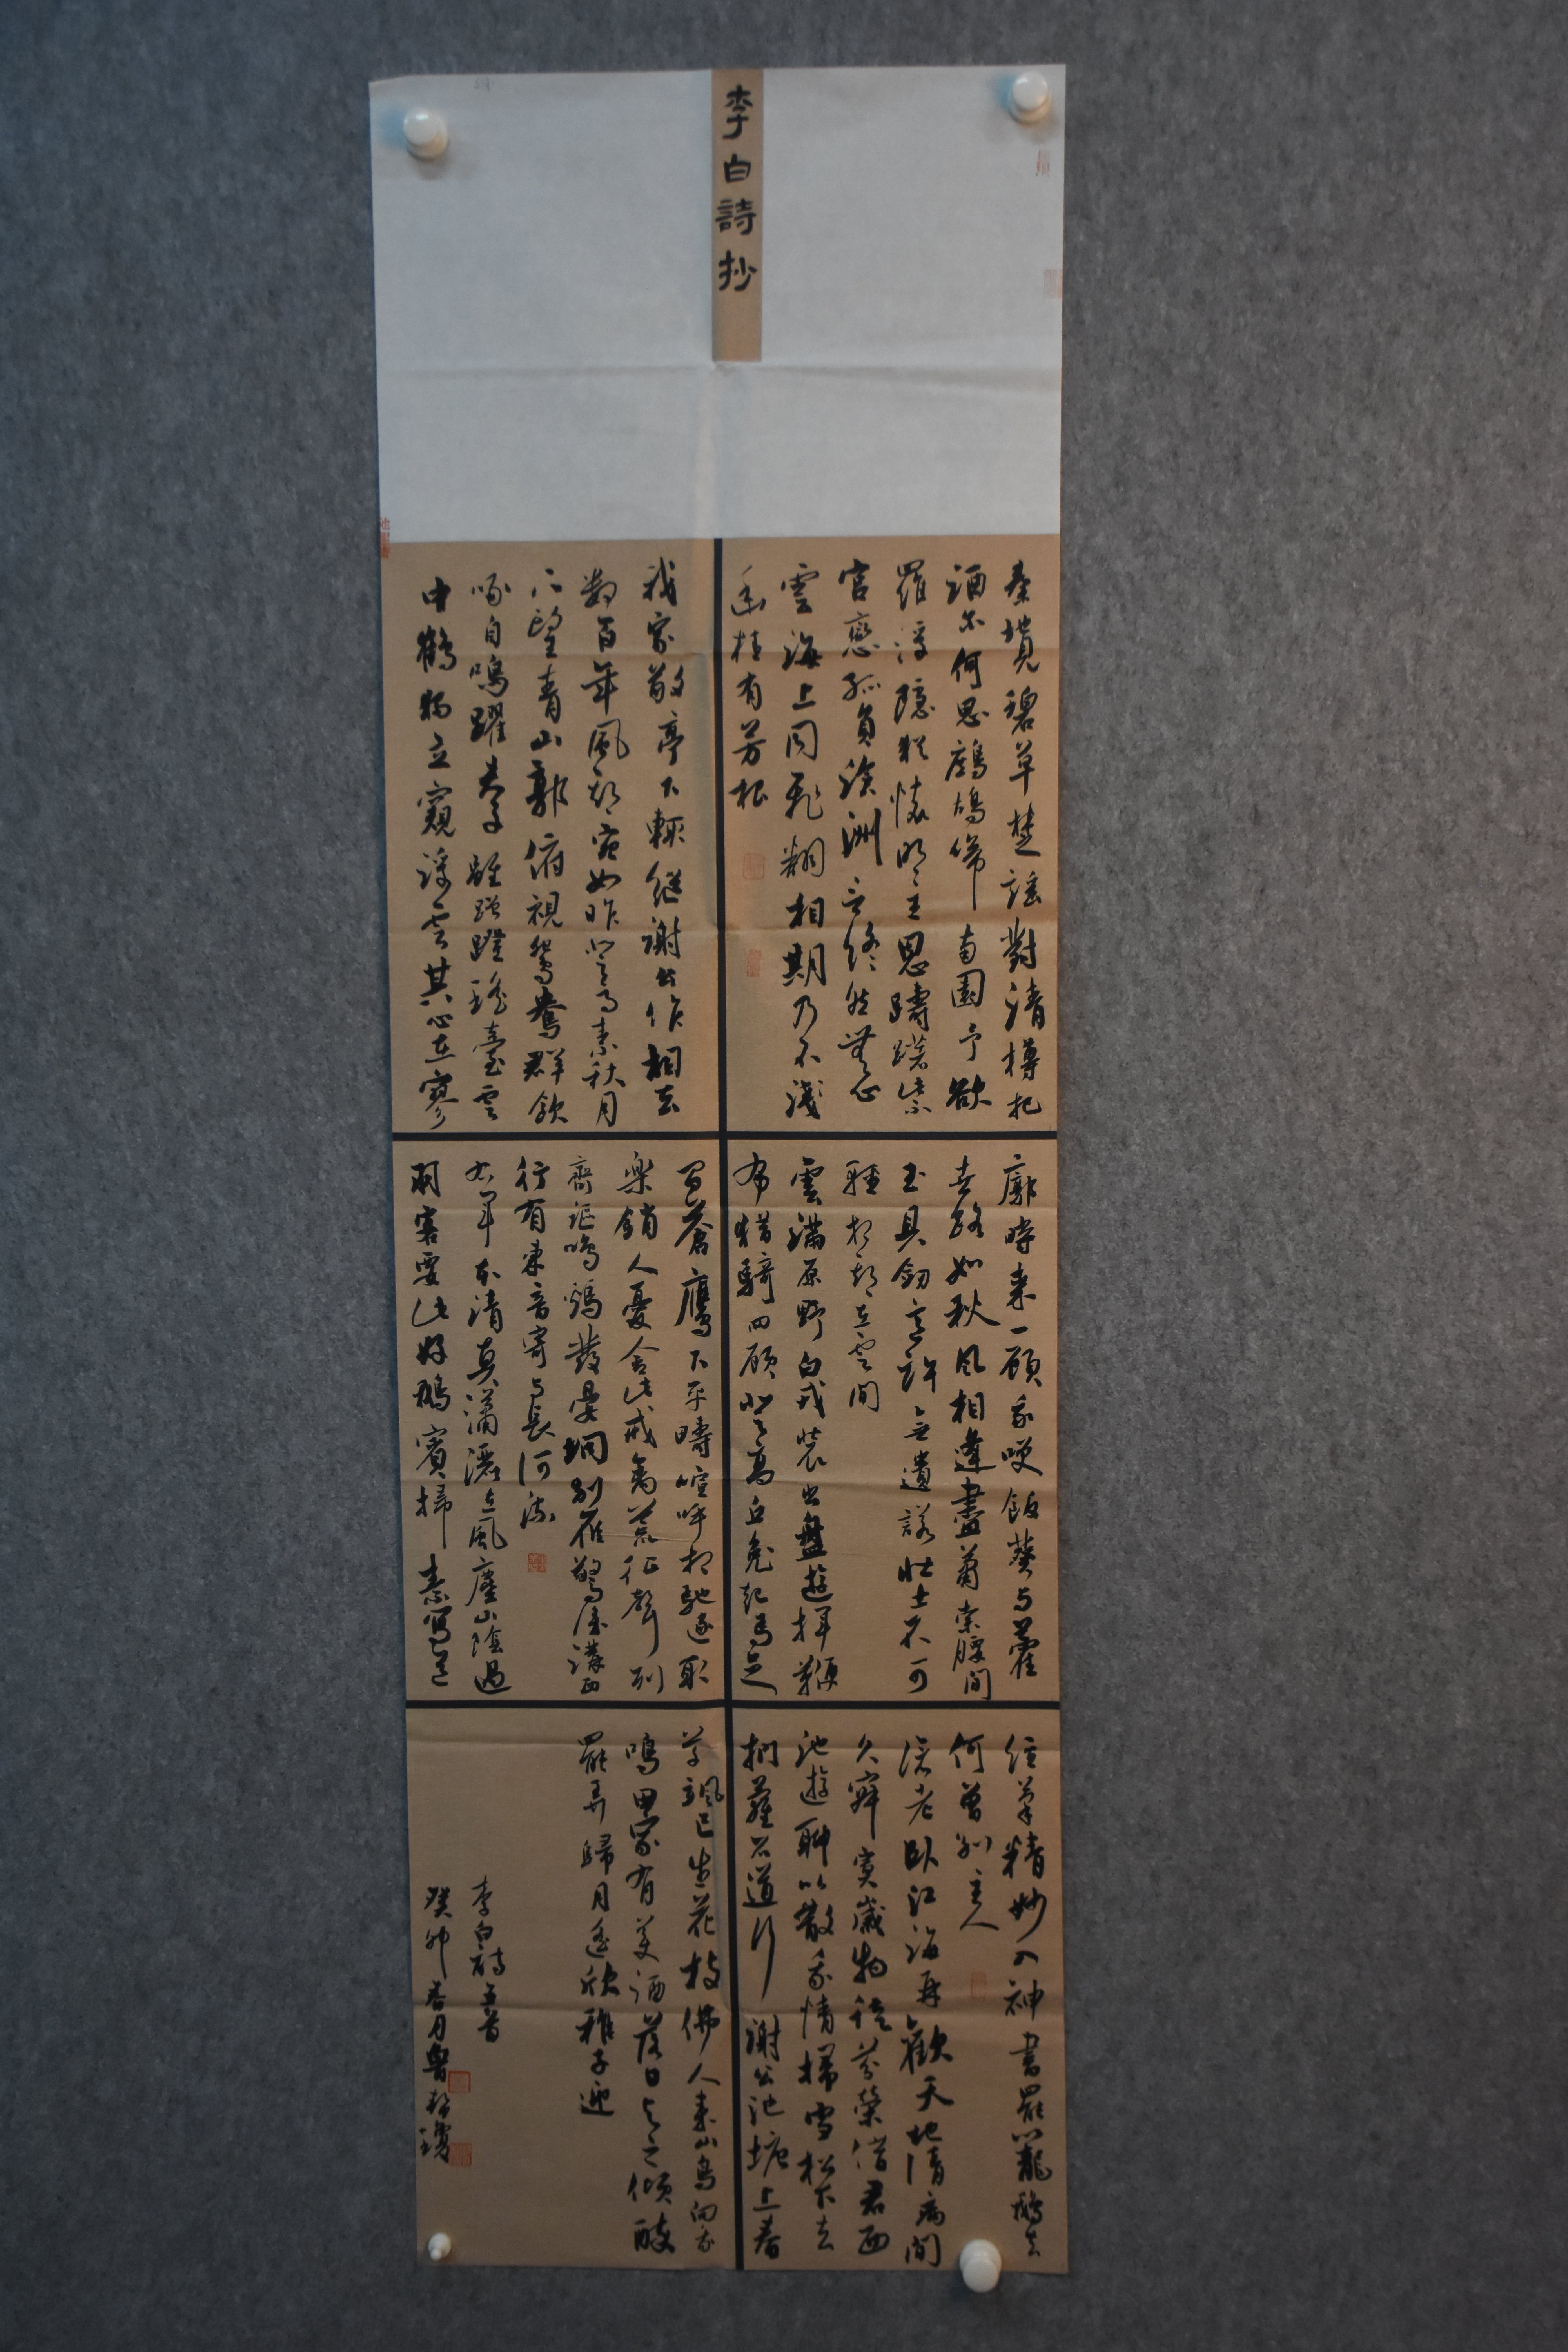 李白詩抄
秦地見碧草楚謠對清樽把
酒尔何思鷓鴣啼南園予欲
羅浮隱猶懷明主恩躊躇紫
宮戀孤負滄洲言終然無心
雲海上同飛翻相期乃不淺
幽桂有芳根
我家敬亭下輒繼謝公作相去
數百年風期宛如昨登高素秋月
下望青山郭俯視鴛鴦群飲
啄自鳴躍夫子雖蹭蹬瑤臺雪
中鶴獨立窺浮雲其心在寥
廓時來一顧我笑飯葵与藿
世路如秋風相逢盡蕭索腰間
玉具劍意許無遺諾壯士不可
輕相期在雲閣
雲滿原野白戎裝出盤遊揮鞭
布獵騎四顧登高丘兔起馬足
間蒼鷹下平疇喧呼相馳逐取
樂銷人憂舍此戒禽荒征聲列
齊謳鳴鷄發晏堈別雁驚淶溝西
行有東音寄与長河流
右軍本清真瀟灑在風塵山陰過
羽客要此好鵝賓掃素寫道
經筆精妙入神書罷籠鵝去
何曾別主人
淪老臥江海再歡天地清病閒
久寂寞歲物徒芬榮借君西
池遊聊以散我情掃雪松下去
捫蘿石道行謝公池塘上春
草颯已生花枝拂人來山鳥向我
鳴田家有美酒落日与之傾醉
罷弄歸月遙欣稚子迎
李白詩五首
癸卯春月魯